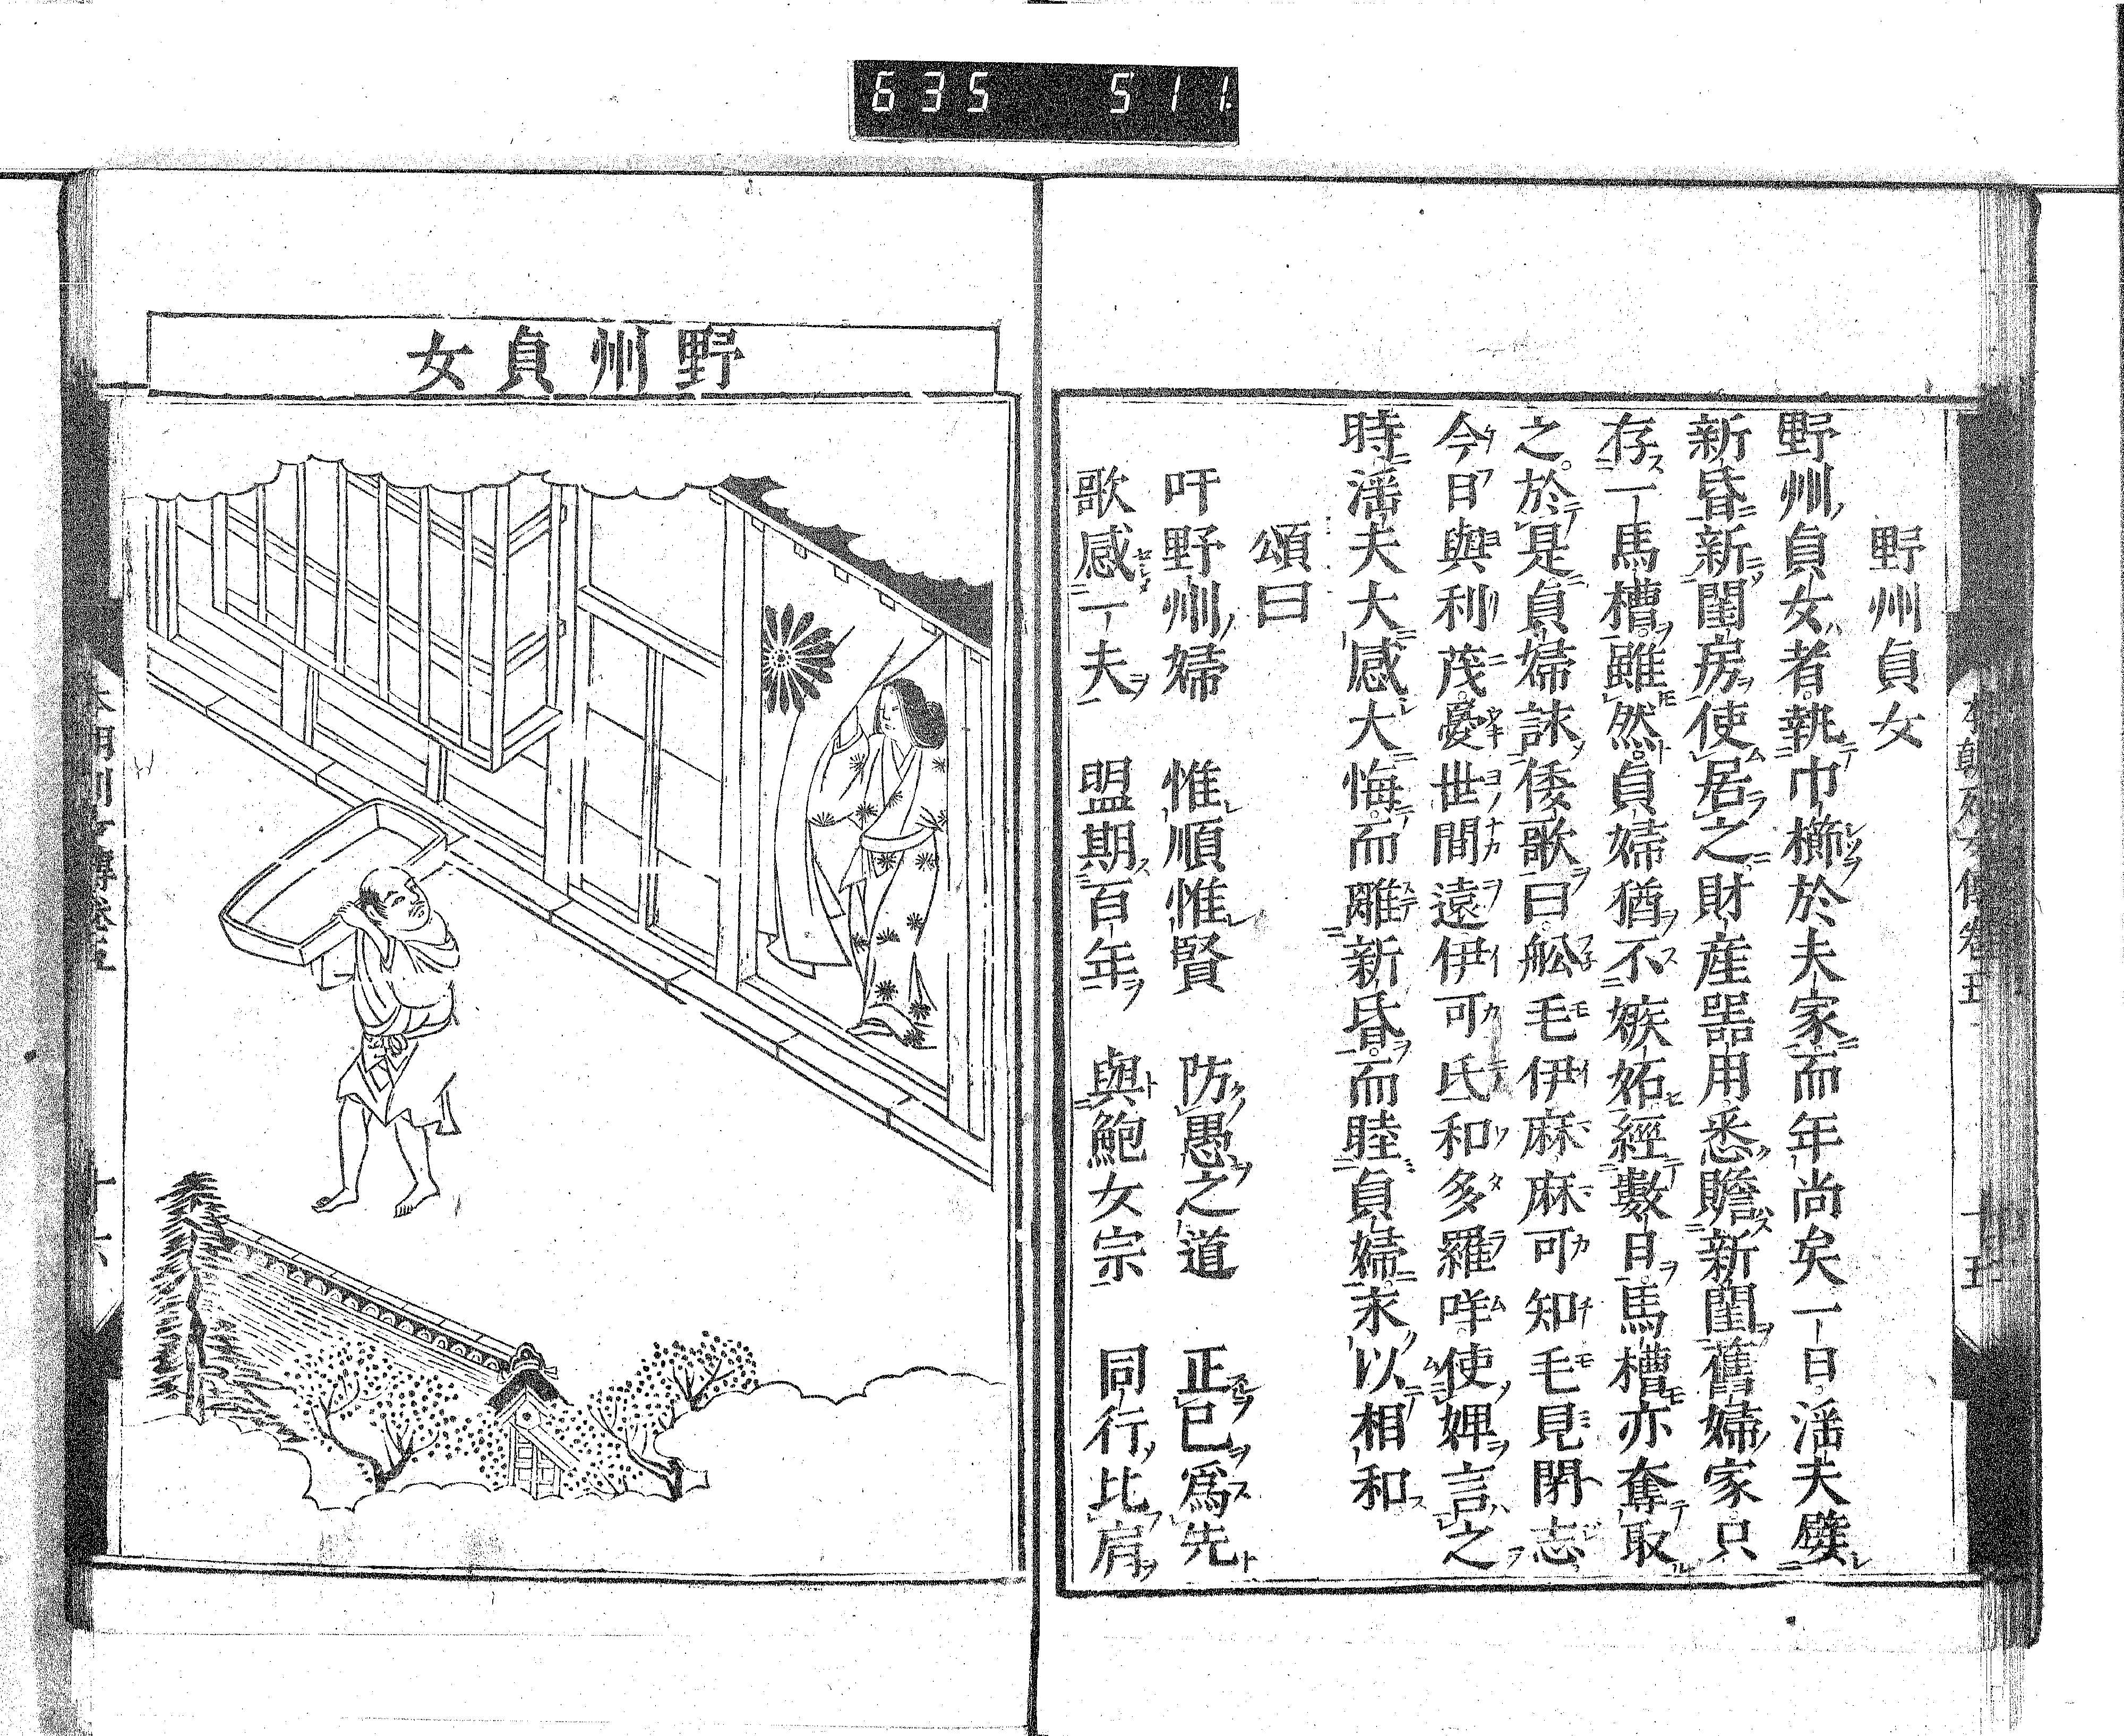 635 511
本朝列女傳卷五 十五
野州貞女
野州貞女者執巾櫛於夫家而年尚矣一日滛夫嬖
新昏新閨房使居之財産噐用悉贍新閨舊婦家只
存一馬槽雖然貞婦猶不嫉妬經數日馬槽亦奪取
之於是貞婦詠倭歌曰舩毛伊麻麻可知毛見閇志
今日與利茂憂世間遠伊可氐和多羅咩使婢言之
時滛夫大感大悔而離新昏而睦貞婦永以相和
頌曰
吁野州婦 惟順惟賢 防愚之道 正已爲先
歌感一夫 盟期百年 與鮑女宗 同行比肩
野州貞女